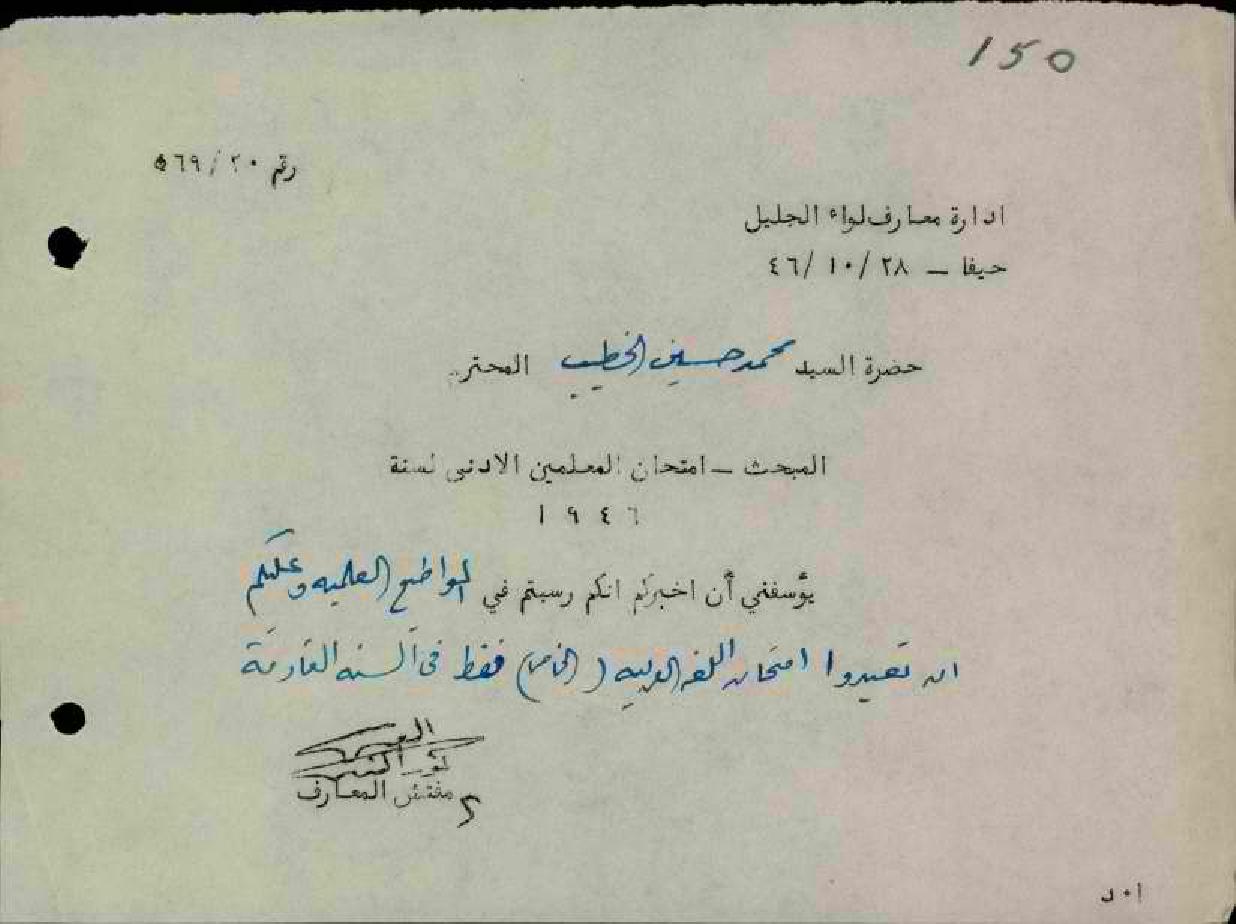 150
رقم ٢٠/٥٦٩
ادارة معارف لواء الجليل
حيفا – ٢٨/١٠/٤٦
حضرة السيد محمد حسين الخطيب المحترم
المبحث – امتحان المعلمين الادنى لسنة
١٩٤٦
يؤسفني أن اخبركم انكم رسبتم في المواضيع العلميه وعليكم
ان تعيدوا امتحان اللغه العربيه (الخاص) فقط في السنه القادمة
مفتش المعارف